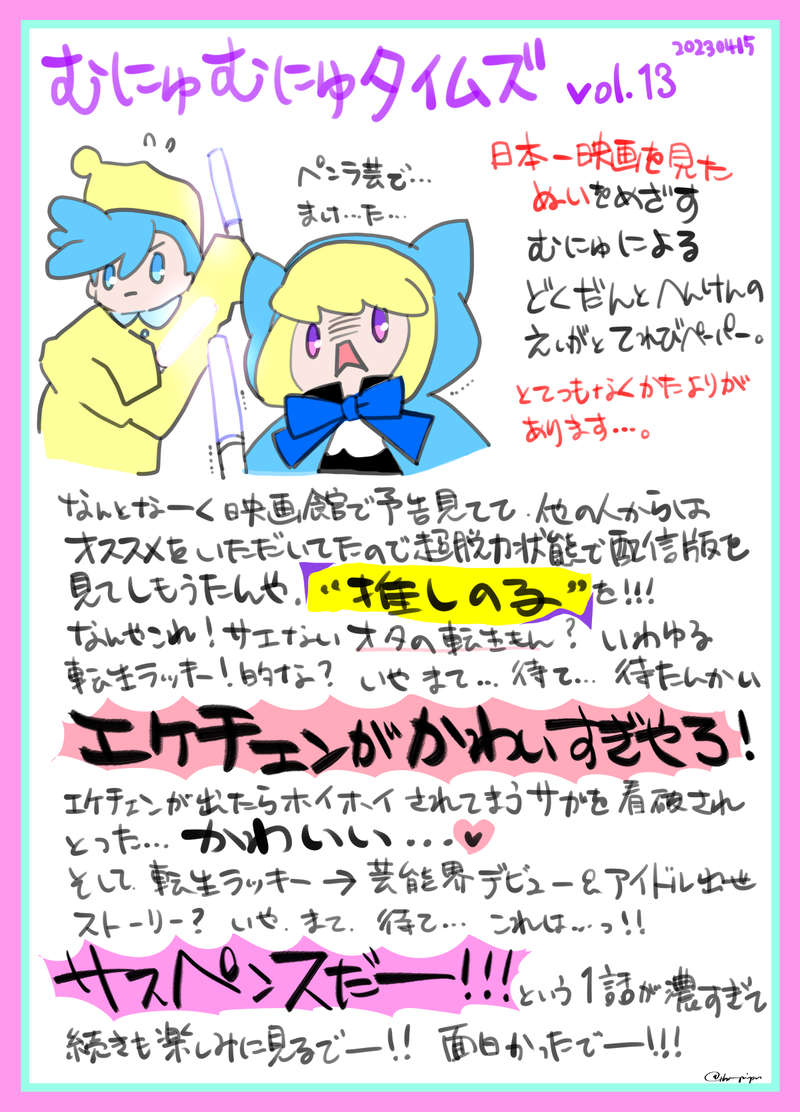 むにゅむにゅタイムズ vol.13
20230415
ペンラ芸で…
まけ…た…
日本一映画を見た
ぬいをめざす
むにゅによる
どくだんとへんけんの
えいがとてれびペーパー。
とてつもなくかたよりが
あります…。
なんとなーく映画館で予告見てて、他の人からは
オススメをいただいてたので超脱力状態で配信版を
見てしもうたんや、“推しの子”を!!!
なんやこれ！サエないオタの転生もん？いわゆる
転生ラッキー！的な？いやまて…待て…待たんかい
エケチェンがかわいすぎやろ！
エケチェンが出たらホイホイされてまうサガを看破され
とった…かわいい…♥
そして、転生ラッキー→芸能界デビュー&アイドル出世
ストーリー？いや、まて、待て…これは…っ!!
サスペンスだー!!!という1話が濃すぎて
続きも楽しみに見るでー!!面白かったでー!!!